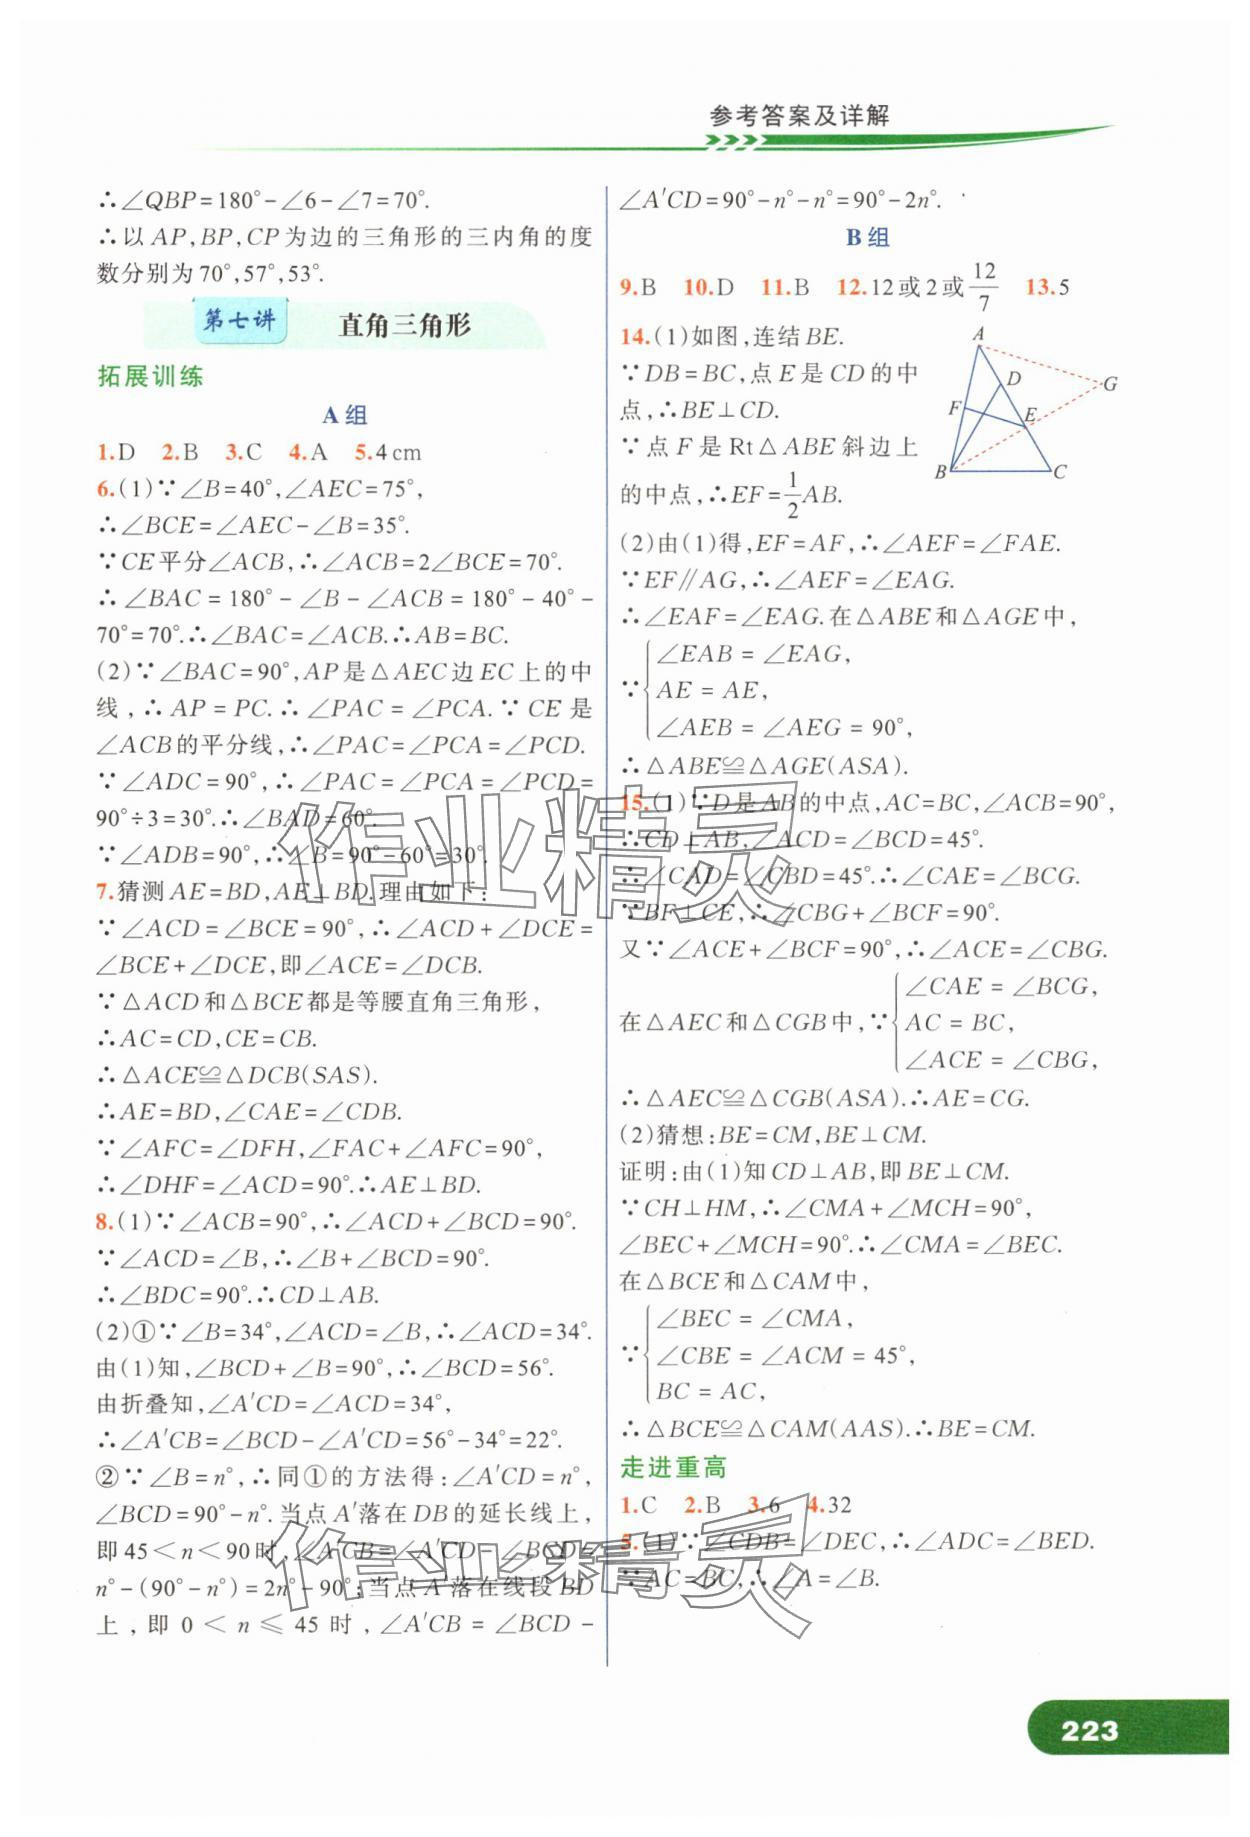 参考答案及详解
∴∠QBP=180°-∠6-∠7=70°.
∴以 AP,BP,CP 为边的三角形的三内角的度
数分别为 70°,57°,53°.
第七讲 直角三角形
拓展训练
A 组
1.D 2.B 3.C 4.A 5.4 cm
6.(1)∵∠B=40°,∠AEC=75°,
∴∠BCE=∠AEC-∠B=35°.
∵CE平分∠ACB,∴∠ACB=2∠BCE=70°.
∴∠BAC=180°-∠B-∠ACB=180°-40°-
70°=70°.∴∠BAC=∠ACB.∴AB=BC.
(2)∵∠BAC=90°,AP是△AEC边EC上的中
线,∴AP=PC.∴∠PAC=∠PCA.∵CE是
∠ACB的平分线,∴∠PAC=∠PCA=∠PCD.
∵∠ADC=90°,∴∠PAC=∠PCA=∠PCD=
90°÷3=30°.∴∠BAD=60°.
∵∠ADB=90°,∴∠B=90°-60°=30°.
7.猜测AE=BD,AE⊥BD.理由如下:
∵∠ACD=∠BCE=90°,∴∠ACD+∠DCE=
∠BCE+∠DCE,即∠ACE=∠DCB.
∵△ACD和△BCE都是等腰直角三角形,
∴AC=CD,CE=CB.
∴△ACE≌△DCB(SAS).
∴AE=BD,∠CAE=∠CDB.
∵∠AFC=∠DFH,∠FAC+∠AFC=90°,
∴∠DHF=∠ACD=90°.∴AE⊥BD.
8.(1)∵∠ACB=90°,∴∠ACD+∠BCD=90°.
∵∠ACD=∠B,∴∠B+∠BCD=90°.
∴∠BDC=90°.∴CD⊥AB.
(2)①∵∠B=34°,∠ACD=∠B,∴∠ACD=34°.
由(1)知,∠BCD+∠B=90°,∴∠BCD=56°.
由折叠知,∠A′CD=∠ACD=34°,
∴∠A′CB=∠BCD-∠A′CD=56°-34°=22°.
②∵∠B=n°,∴同①的方法得:∠A′CD=n°,
∠BCD=90°-n°.当点A′落在DB的延长线上,
即45<n<90时,∠A′CB=∠A′CD-∠BCD=
n°-(90°-n°)=2n°-90°;当点A′落在线段BD
上,即0<n≤45时,∠A′CB=∠BCD-
∠A′CD=90°-n°-n°=90°-2n°.
B 组
9.B 10.D 11.B 12.12或2或12/7 13.5
14.(1)如图,连结BE.
∵DB=BC,点E是CD的中
点,∴BE⊥CD.
∵点F是Rt△ABE斜边上
的中点,∴EF=1/2AB.
A
D
G
F
E
B
C
(2)由(1)得,EF=AF,∴∠AEF=∠FAE.
∵EF∥AG,∴∠AEF=∠EAG.
∴∠EAF=∠EAG.在△ABE和△AGE中,
∠EAB=∠EAG,
∵ AE=AE,
∠AEB=∠AEG=90°,
∴△ABE≌△AGE(ASA).
15.(1)∵D是AB的中点,AC=BC,∠ACB=90°,
∴CD⊥AB,∠ACD=∠BCD=45°.
∴∠CAD=∠CBD=45°.∴∠CAE=∠BCG.
∵BF⊥CE,∴∠CBG+∠BCF=90°.
又∵∠ACE+∠BCF=90°,∴∠ACE=∠CBG.
∠CAE=∠BCG,
在△AEC和△CGB中,∵ AC=BC,
∠ACE=∠CBG,
∴△AEC≌△CGB(ASA).∴AE=CG.
(2)猜想:BE=CM,BE⊥CM.
证明:由(1)知CD⊥AB,即BE⊥CM.
∵CH⊥HM,∴∠CMA+∠MCH=90°,
∠BEC+∠MCH=90°.∴∠CMA=∠BEC.
在△BCE和△CAM中,
∠BEC=∠CMA,
∵ ∠CBE=∠ACM=45°,
BC=AC,
∴△BCE≌△CAM(AAS).∴BE=CM.
走进重高
1.C 2.B 3.6 4.32
5.(1)∵∠CDB=∠DEC,∴∠ADC=∠BED.
∵AC=BC,∴∠A=∠B.
作业精灵
作业精灵
223